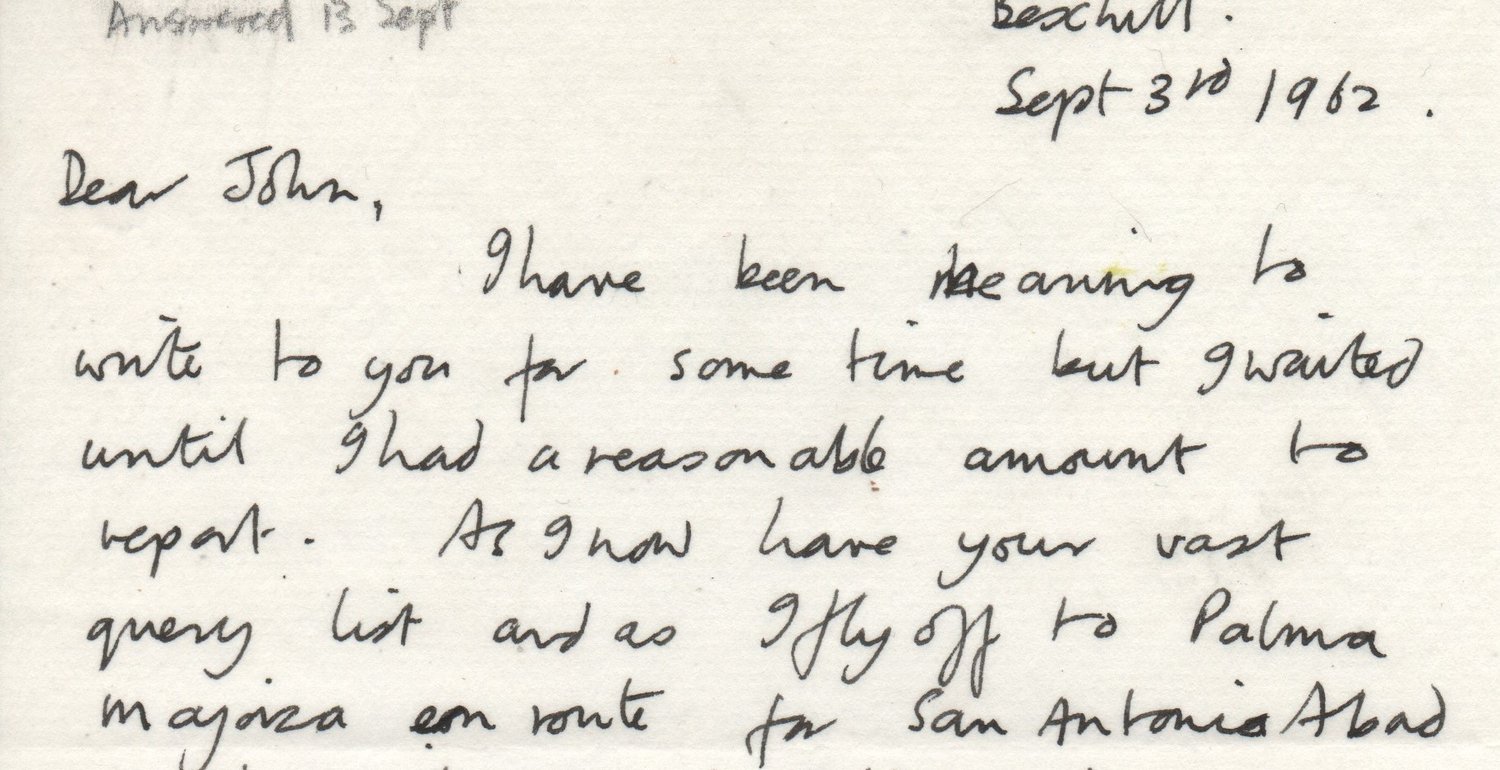 Answered 13 Sept
Bexhill.
Sept 3rd 1962.
Dear John,
I have been meaning to
write to you for some time but I waited
until I had a reasonable amount to
report. As I now have your vast
query list and as I fly off to Palma
Majorca en route for San Antonio Abad